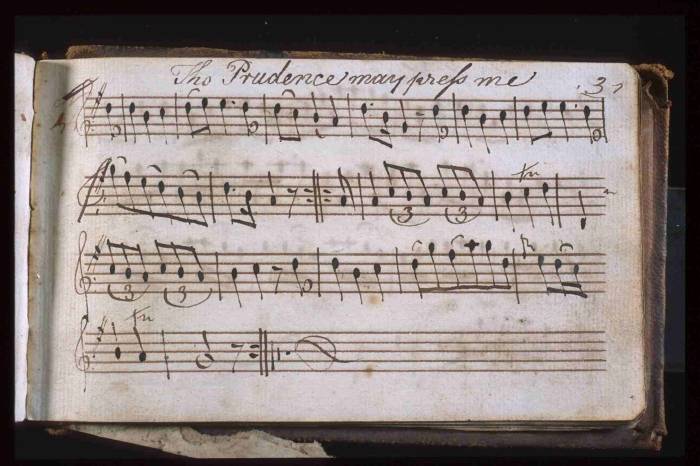 Tho Prudence may preſs me
31
tr
3 3
3 3
tr